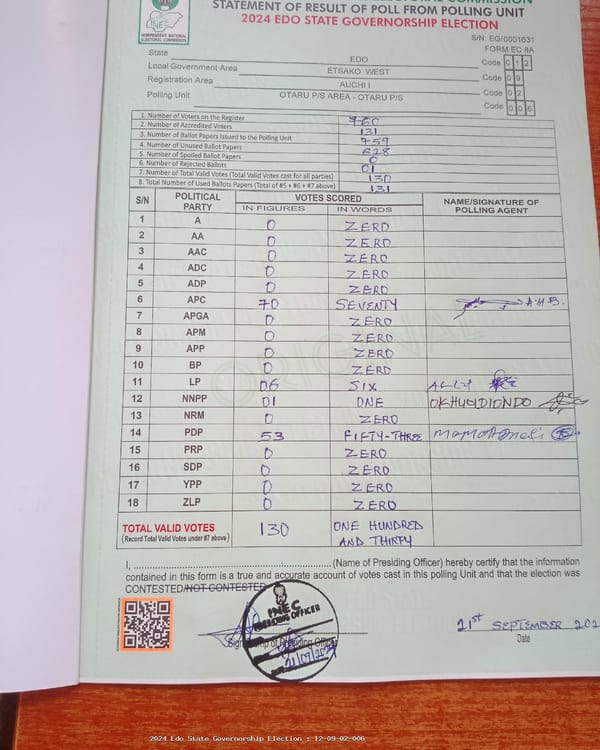 STATEMENT OF RESULT OF POLL FROM POLLING UNIT
2024 EDO STATE GOVERNORSHIP ELECTION
INEC
INDEPENDENT NATIONAL ELECTORAL COMMISSION
S/N: EG/0001631
FORM EC 8A
State EDO Code 0 1 2
Local Government Area ETSAKO WEST Code 0 9
Registration Area AUCHI I Code 0 2
Polling Unit OTARU P/S AREA - OTARU P/S Code 0 0 6
1. Number of Voters on the Register 760
2. Number of Accredited Voters 131
3. Number of Ballot Papers Issued to the Polling Unit 759
4. Number of Unused Ballot Papers 628
5. Number of Spoiled Ballot Papers 0
6. Number of Rejected Ballots 01
7. Number of Total Valid Votes (Total Valid Votes cast for all parties) 130
8. Total Number of Used Ballots Papers (Total of #5 + #6 + #7 above) 131
S/N POLITICAL PARTY VOTES SCORED NAME/SIGNATURE OF POLLING AGENT
IN FIGURES IN WORDS
1 A 0 ZERO
2 AA 0 ZERO
3 AAC 0 ZERO
4 ADC 0 ZERO
5 ADP 0 ZERO
6 APC 70 SEVENTY A.H.B.
7 APGA 0 ZERO
8 APM 0 ZERO
9 APP 0 ZERO
10 BP 0 ZERO
11 LP 06 SIX ALLY
12 NNPP 01 ONE
13 NRM 0 ZERO
14 PDP 53 FIFTY-THREE
15 PRP 0 ZERO
16 SDP 0 ZERO
17 YPP 0 ZERO
18 ZLP 0 ZERO
TOTAL VALID VOTES 130 ONE HUNDRED AND THIRTY
(Record Total Valid Votes under #7 above)
I, ............ (Name of Presiding Officer) hereby certify that the information
contained in this form is a true and accurate account of votes cast in this polling Unit and that the election was
CONTESTED/NOT CONTESTED
INEC
PRESIDING OFFICER
21/09/2024
Signature of Presiding Officer
21ST SEPTEMBER 202
Date
ORIGINAL
2024 Edo State Governorship Election : 12-09-02-006